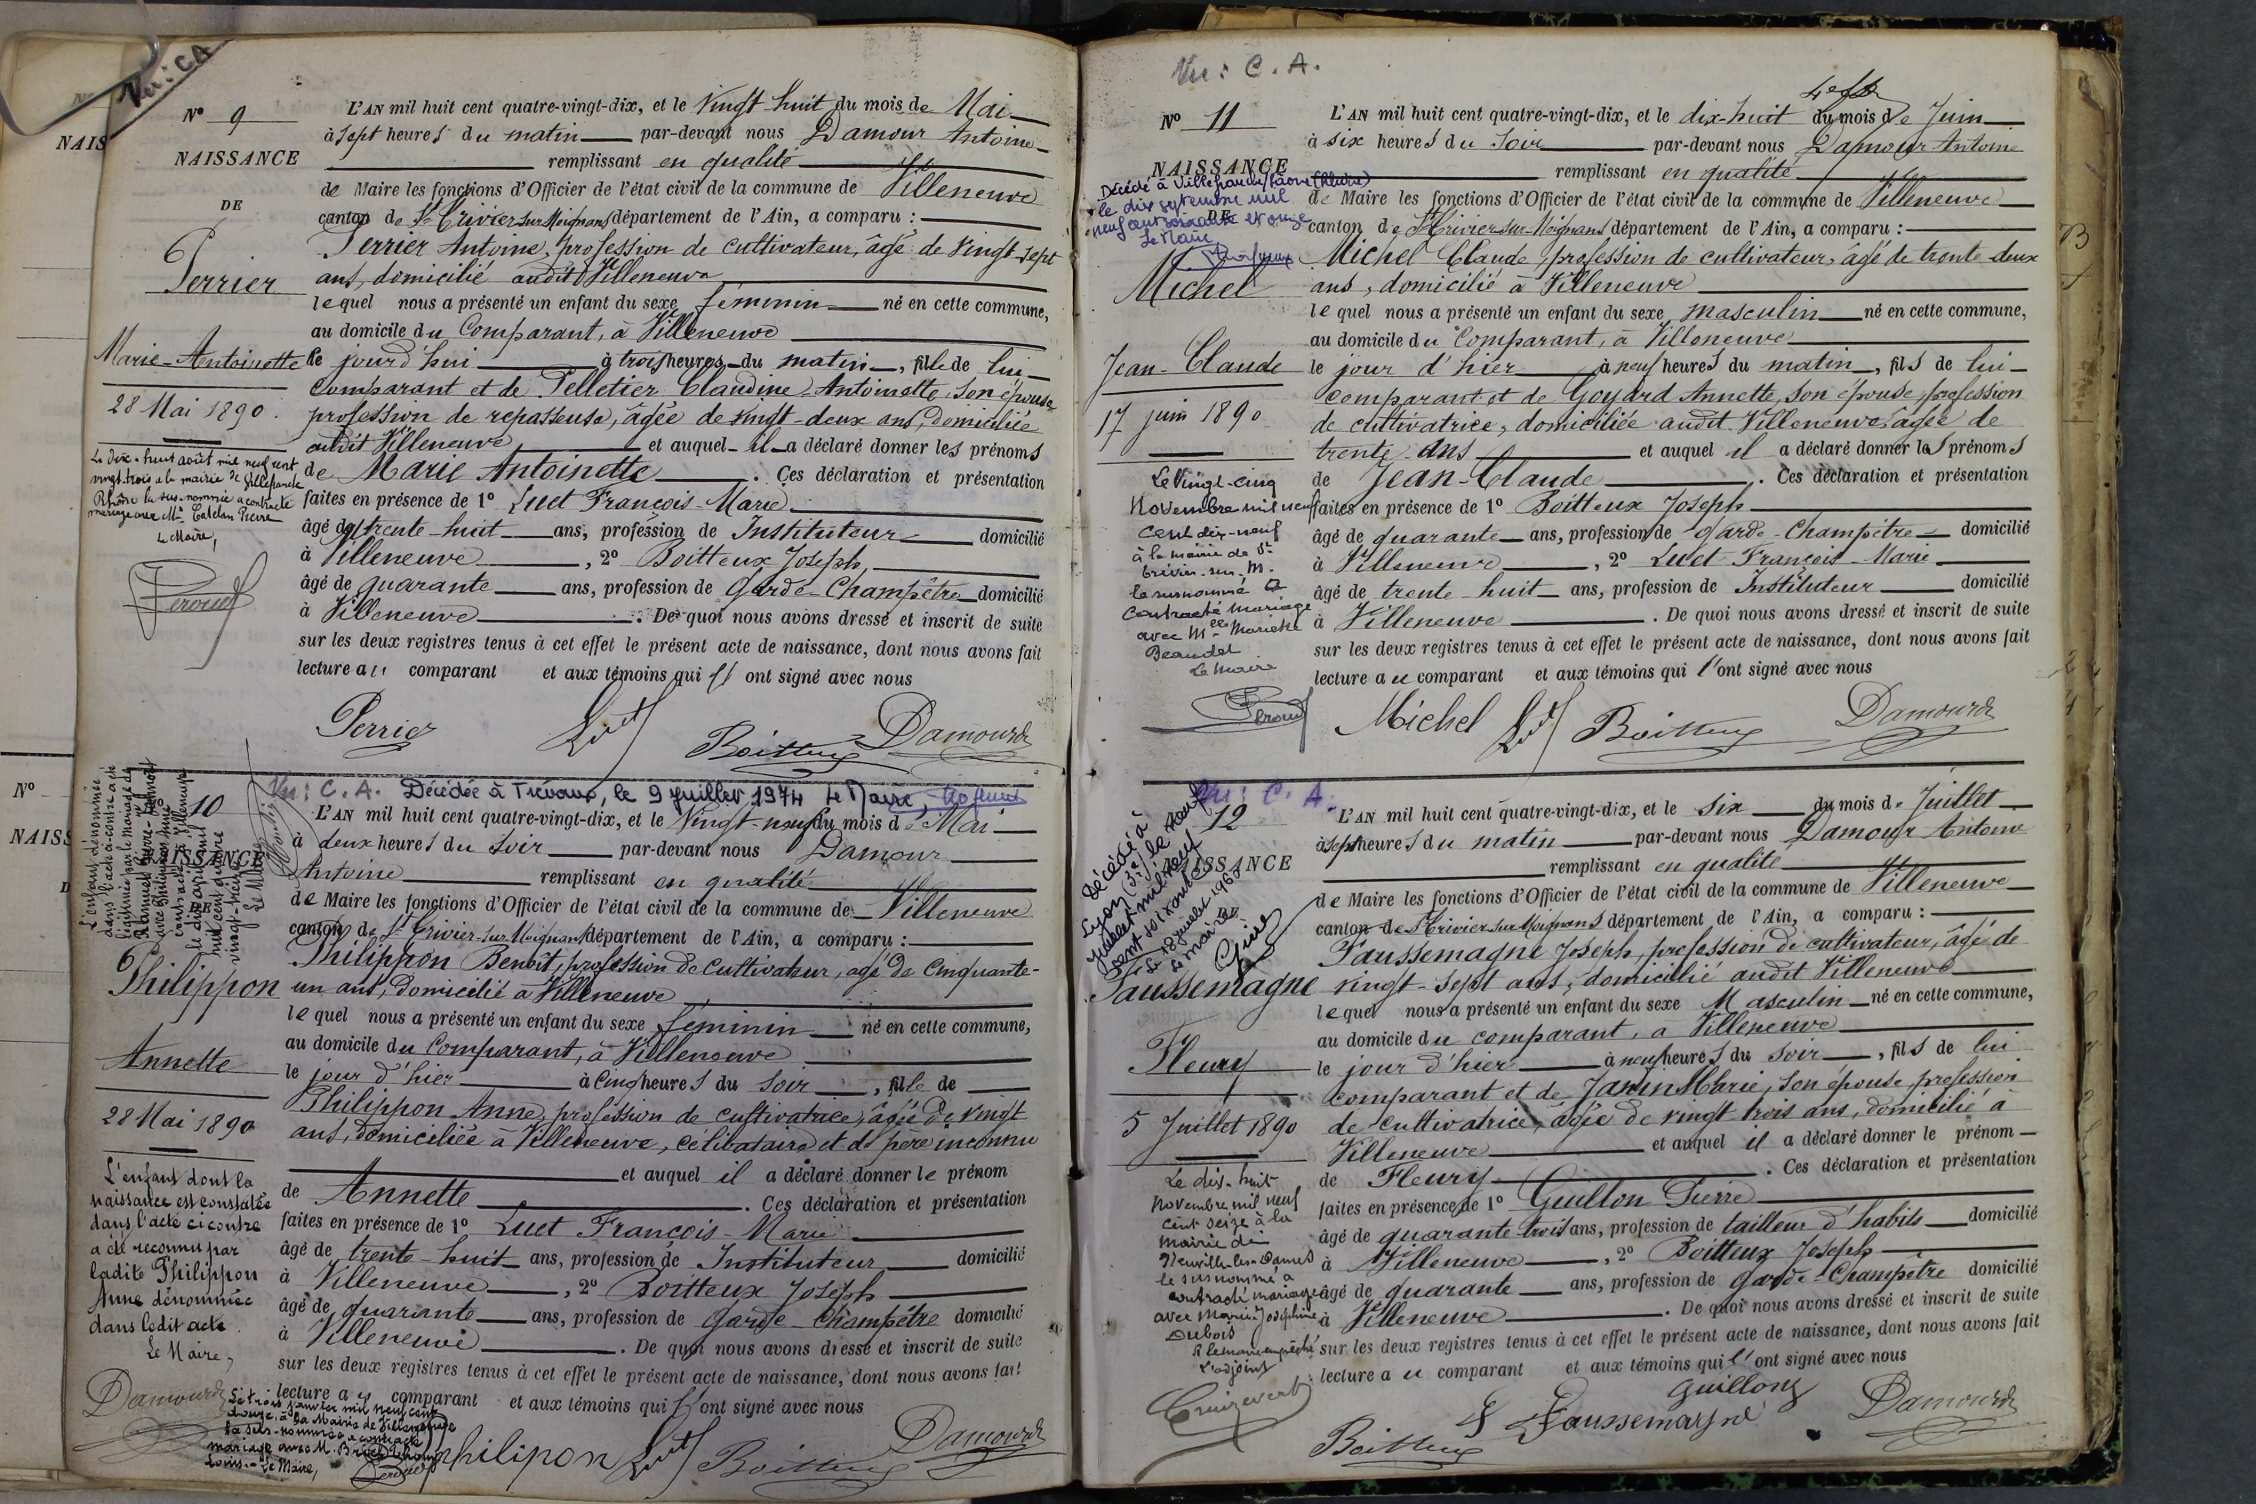 Vu : CA
N° 9
NAISSANCE
DE
Perrier
Marie-Antoinette
28 Mai 1890.
Le dix-huit août mil neuf cent
vingt trois à la mairie de Villefranche
Rhône la sus-nommée a contracté
mariage avec Mr Catelan Pierre
Le Maire,
L'AN mil huit cent quatre-vingt-dix, et le Vingt huit du mois de Mai
à sept heures du matin par-devant nous Damour Antoine
remplissant en qualité
de Maire les fonctions d'Officier de l'état civil de la commune de Villeneuve
canton de St Trivier sur Moignans département de l'Ain, a comparu :
Perrier Antoine, profession de cultivateur, âgé de vingt-sept
ans, domicilié audit Villeneuve
lequel nous a présenté un enfant du sexe féminin né en cette commune,
au domicile du Comparant, à Villeneuve
le jourd'hui à trois heures du matin, fille de lui
comparant et de Pelletier Claudine Antoinette, son épouse
profession de repasseuse, âgée de vingt-deux ans, domiciliée
audit Villeneuve et auquel il a déclaré donner les prénoms
de Marie Antoinette. Ces déclaration et présentation
faites en présence de 1° Luet François-Marie
âgé de trente-huit ans, profession de Instituteur domicilié
à Villeneuve, 2° Boitteux Joseph,
âgé de quarante ans, profession de Garde-Champêtre domicilié
à Villeneuve. De quoi nous avons dressé et inscrit de suite
sur les deux registres tenus à cet effet le présent acte de naissance, dont nous avons fait
lecture au comparant et aux témoins qui ont signé avec nous
Perrier Luet Boitteux Damour
N° 10
NAISSANCE
DE
Philippon
Annette
28 Mai 1890
L'enfant dénommée
dans l'acte ci-contre a été
légitimée par le mariage de
avec Philippon Anne
contracté à Villeneuve
L'enfant dont la
naissance est constatée
dans l'acte ci contre
a été reconnu par
ladite Philippon
Anne dénommée
dans ledit acte.
Le Maire,
Damour
Le trois janvier mil neuf cent
douze, à la Mairie de Villeneuve
la sus-nommée a contracté
mariage avec M.
Louis. - Le Maire,
Vu : C. A. Décédée à Trévoux, le 9 Juillet 1974 Le Maire,
L'AN mil huit cent quatre-vingt-dix, et le Vingt-neuf du mois de Mai
à deux heures du soir par-devant nous Damour
Antoine remplissant en qualité
de Maire les fonctions d'Officier de l'état civil de la commune de Villeneuve
canton de St Trivier-sur Moignans département de l'Ain, a comparu :
Philippon Benoît, profession de cultivateur, âgé de cinquante-
un ans, domicilié à Villeneuve
lequel nous a présenté un enfant du sexe féminin né en cette commune,
au domicile du Comparant, à Villeneuve
le jour d'hier à cinq heures du soir, fille de
Philippon Anne, profession de cultivatrice, âgée de vingt
ans, domiciliée à Villeneuve, célibataire et de père inconnu
et auquel il a déclaré donner le prénom
de Annette. Ces déclaration et présentation
faites en présence de 1° Luet François-Marie
âgé de trente-huit ans, profession de Instituteur domicilié
à Villeneuve, 2° Boitteux Joseph
âgé de quarante ans, profession de Garde-Champêtre domicilié
à Villeneuve. De quoi nous avons dressé et inscrit de suite
sur les deux registres tenus à cet effet le présent acte de naissance, dont nous avons fait
lecture au comparant et aux témoins qui ont signé avec nous
philipon Luet Boitteux Damour
Vu : C. A.
N° 11
NAISSANCE
DE
Décédé à Villefranche/Saône (Rhône)
le dix septembre mil
neuf cent soixante et onze
Le Maire
Michel
Jean-Claude
17 juin 1890
Le Vingt-cinq
Novembre mil neuf
cent dix-neuf
à la mairie de St
Trivier-sur-M.
le susnommé a
contracté mariage
avec Melle Mariette
Beaudet
Le Maire
L'AN mil huit cent quatre-vingt-dix, et le dix-huit du mois de Juin
à six heures du soir par-devant nous Damour Antoine
remplissant en qualité
de Maire les fonctions d'Officier de l'état civil de la commune de Villeneuve
canton de St Trivier-sur-Moignans département de l'Ain, a comparu :
Michel Claude, profession de cultivateur, âgé de trente deux
ans, domicilié à Villeneuve
lequel nous a présenté un enfant du sexe masculin né en cette commune,
au domicile du Comparant, à Villeneuve
le jour d'hier à neuf heures du matin, fils de lui
comparant et de Goyard Annette, son épouse, profession
de cultivatrice, domiciliée audit Villeneuve, âgée de
trente ans et auquel il a déclaré donner les prénoms
de Jean-Claude. Ces déclaration et présentation
faites en présence de 1° Boitteux Joseph
âgé de quarante ans, profession de garde-Champêtre domicilié
à Villeneuve, 2° Luet François-Marie
âgé de trente-huit ans, profession de Instituteur domicilié
à Villeneuve. De quoi nous avons dressé et inscrit de suite
sur les deux registres tenus à cet effet le présent acte de naissance, dont nous avons fait
lecture au comparant et aux témoins qui l'ont signé avec nous
Michel Luet Boitteux Damour
Vu : C. A.
12
NAISSANCE
DE
Décédé à
Lyon (3e) le neuf
juillet mil neuf
cent soixante
Le 18 juillet 196
Le maire
Faussemagne
Fleury
5 Juillet 1890
Le dix-huit
Novembre mil neuf
cent seize à la
mairie de
Neuville-les-Dames
le susnommé a
contracté mariage
avec Marie-Joséphine
Dubois
P. le maire empêché
L'adjoint
L'AN mil huit cent quatre-vingt-dix, et le six du mois de Juillet
à sept heures du matin par-devant nous Damour Antoine
remplissant en qualité
de Maire les fonctions d'Officier de l'état civil de la commune de Villeneuve
canton de St Trivier sur Moignans département de l'Ain, a comparu :
Faussemagne Joseph, profession de cultivateur, âgé de
vingt-sept ans, domicilié audit Villeneuve
lequel nous a présenté un enfant du sexe Masculin né en cette commune,
au domicile du comparant, à Villeneuve
le jour d'hier à neuf heures du soir, fils de lui
comparant et de Janin Marie, son épouse profession
de cultivatrice, âgée de vingt trois ans, domicilié à
Villeneuve et auquel il a déclaré donner le prénom
de Fleury. Ces déclaration et présentation
faites en présence de 1° Guillon Pierre
âgé de quarante-trois ans, profession de tailleur d'habits domicilié
à Villeneuve, 2° Boitteux Joseph
âgé de quarante ans, profession de garde-Champêtre domicilié
à Villeneuve. De quoi nous avons dressé et inscrit de suite
sur les deux registres tenus à cet effet le présent acte de naissance, dont nous avons fait
lecture au comparant et aux témoins qui l'ont signé avec nous
Boitteux Faussemagne Guillon Damour